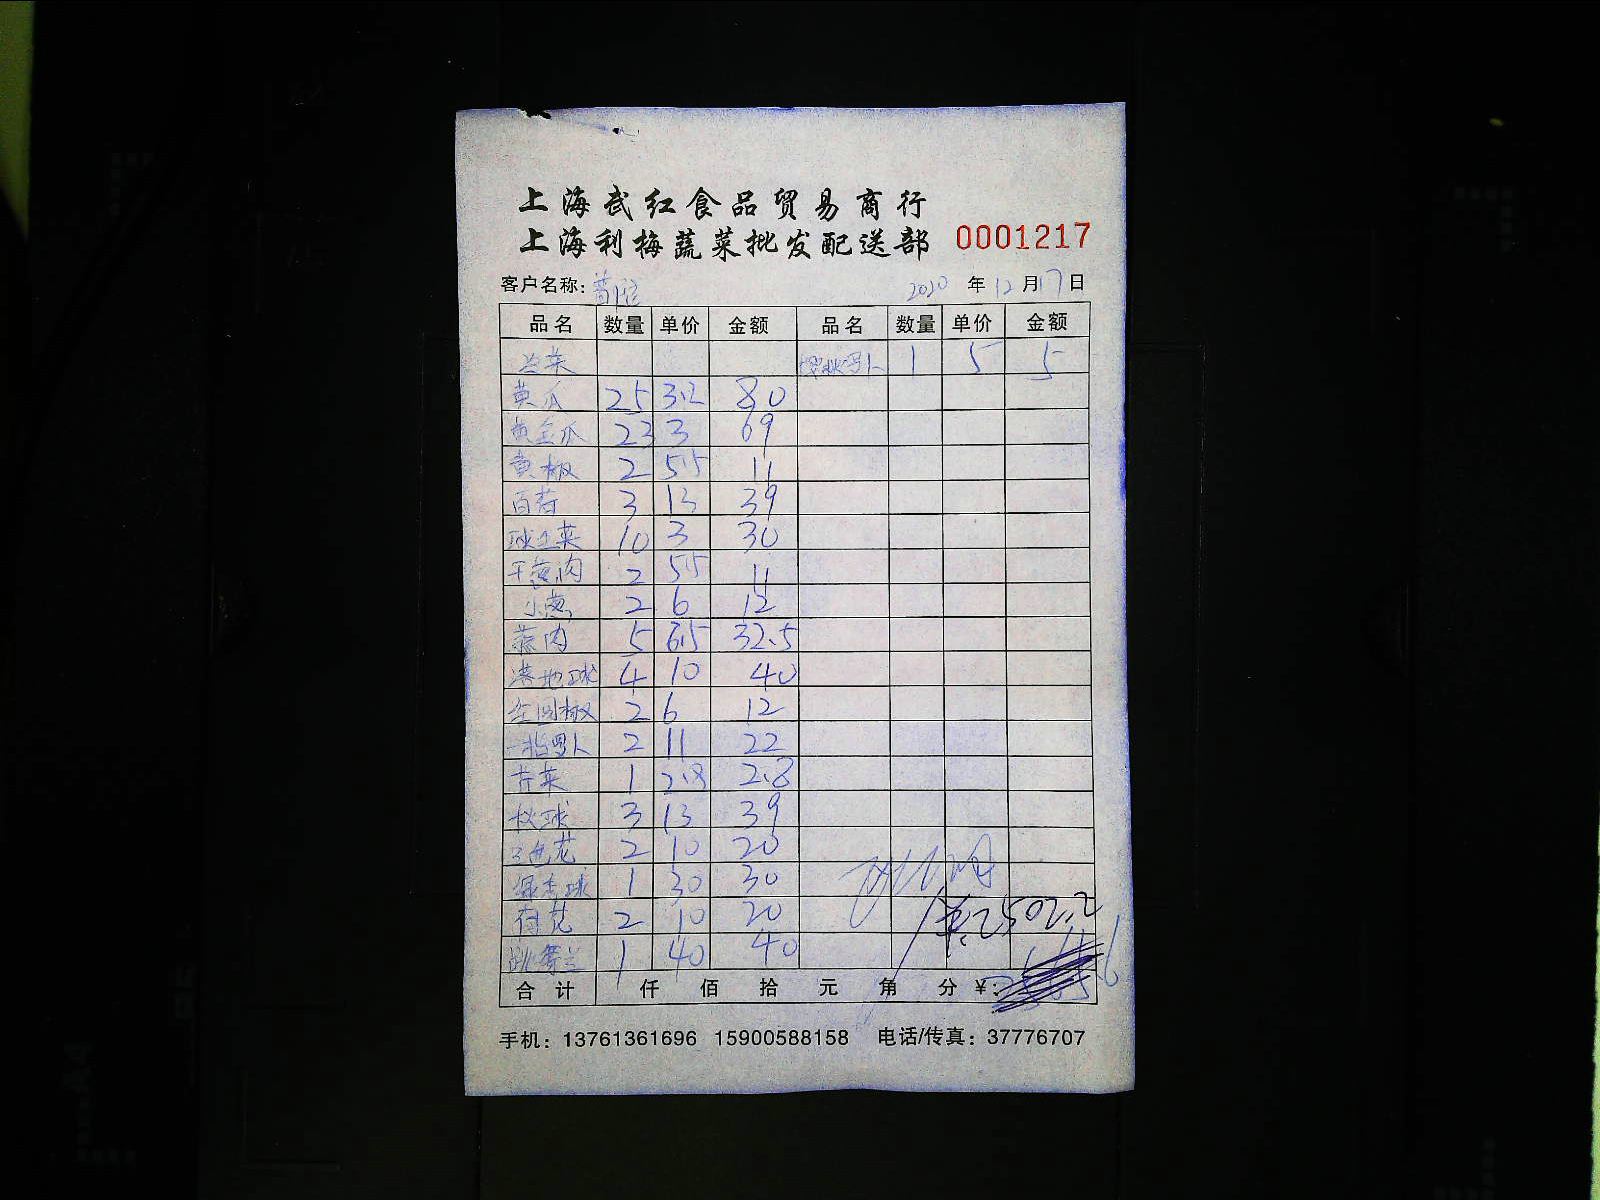 上海武红食品贸易商行
上海利梅蔬菜批发配送部 0001217
客户名称: 2020 年 12 月 17 日
品名 数量 单价 金额 品名 数量 单价 金额
1 5 5
黄瓜 25 3.2 80
黄金瓜 23 3 69
黄椒 2 5.5 11
3 13 39
球生菜 10 3 30
干葱肉 2 5.5 11
小葱 2 6 12
蒜肉 5 6.5 32.5
4 10 40
红圆椒 2 6 12
2 11 22
芹菜 1 2.8 2.8
3 13 39
三色花 2 10 20
1 30 30
荷花 2 10 20
跳舞兰 1 40 40
合计 仟 佰 拾 元 角 分 ¥:
手机: 13761361696 15900588158 电话/传真: 37776707